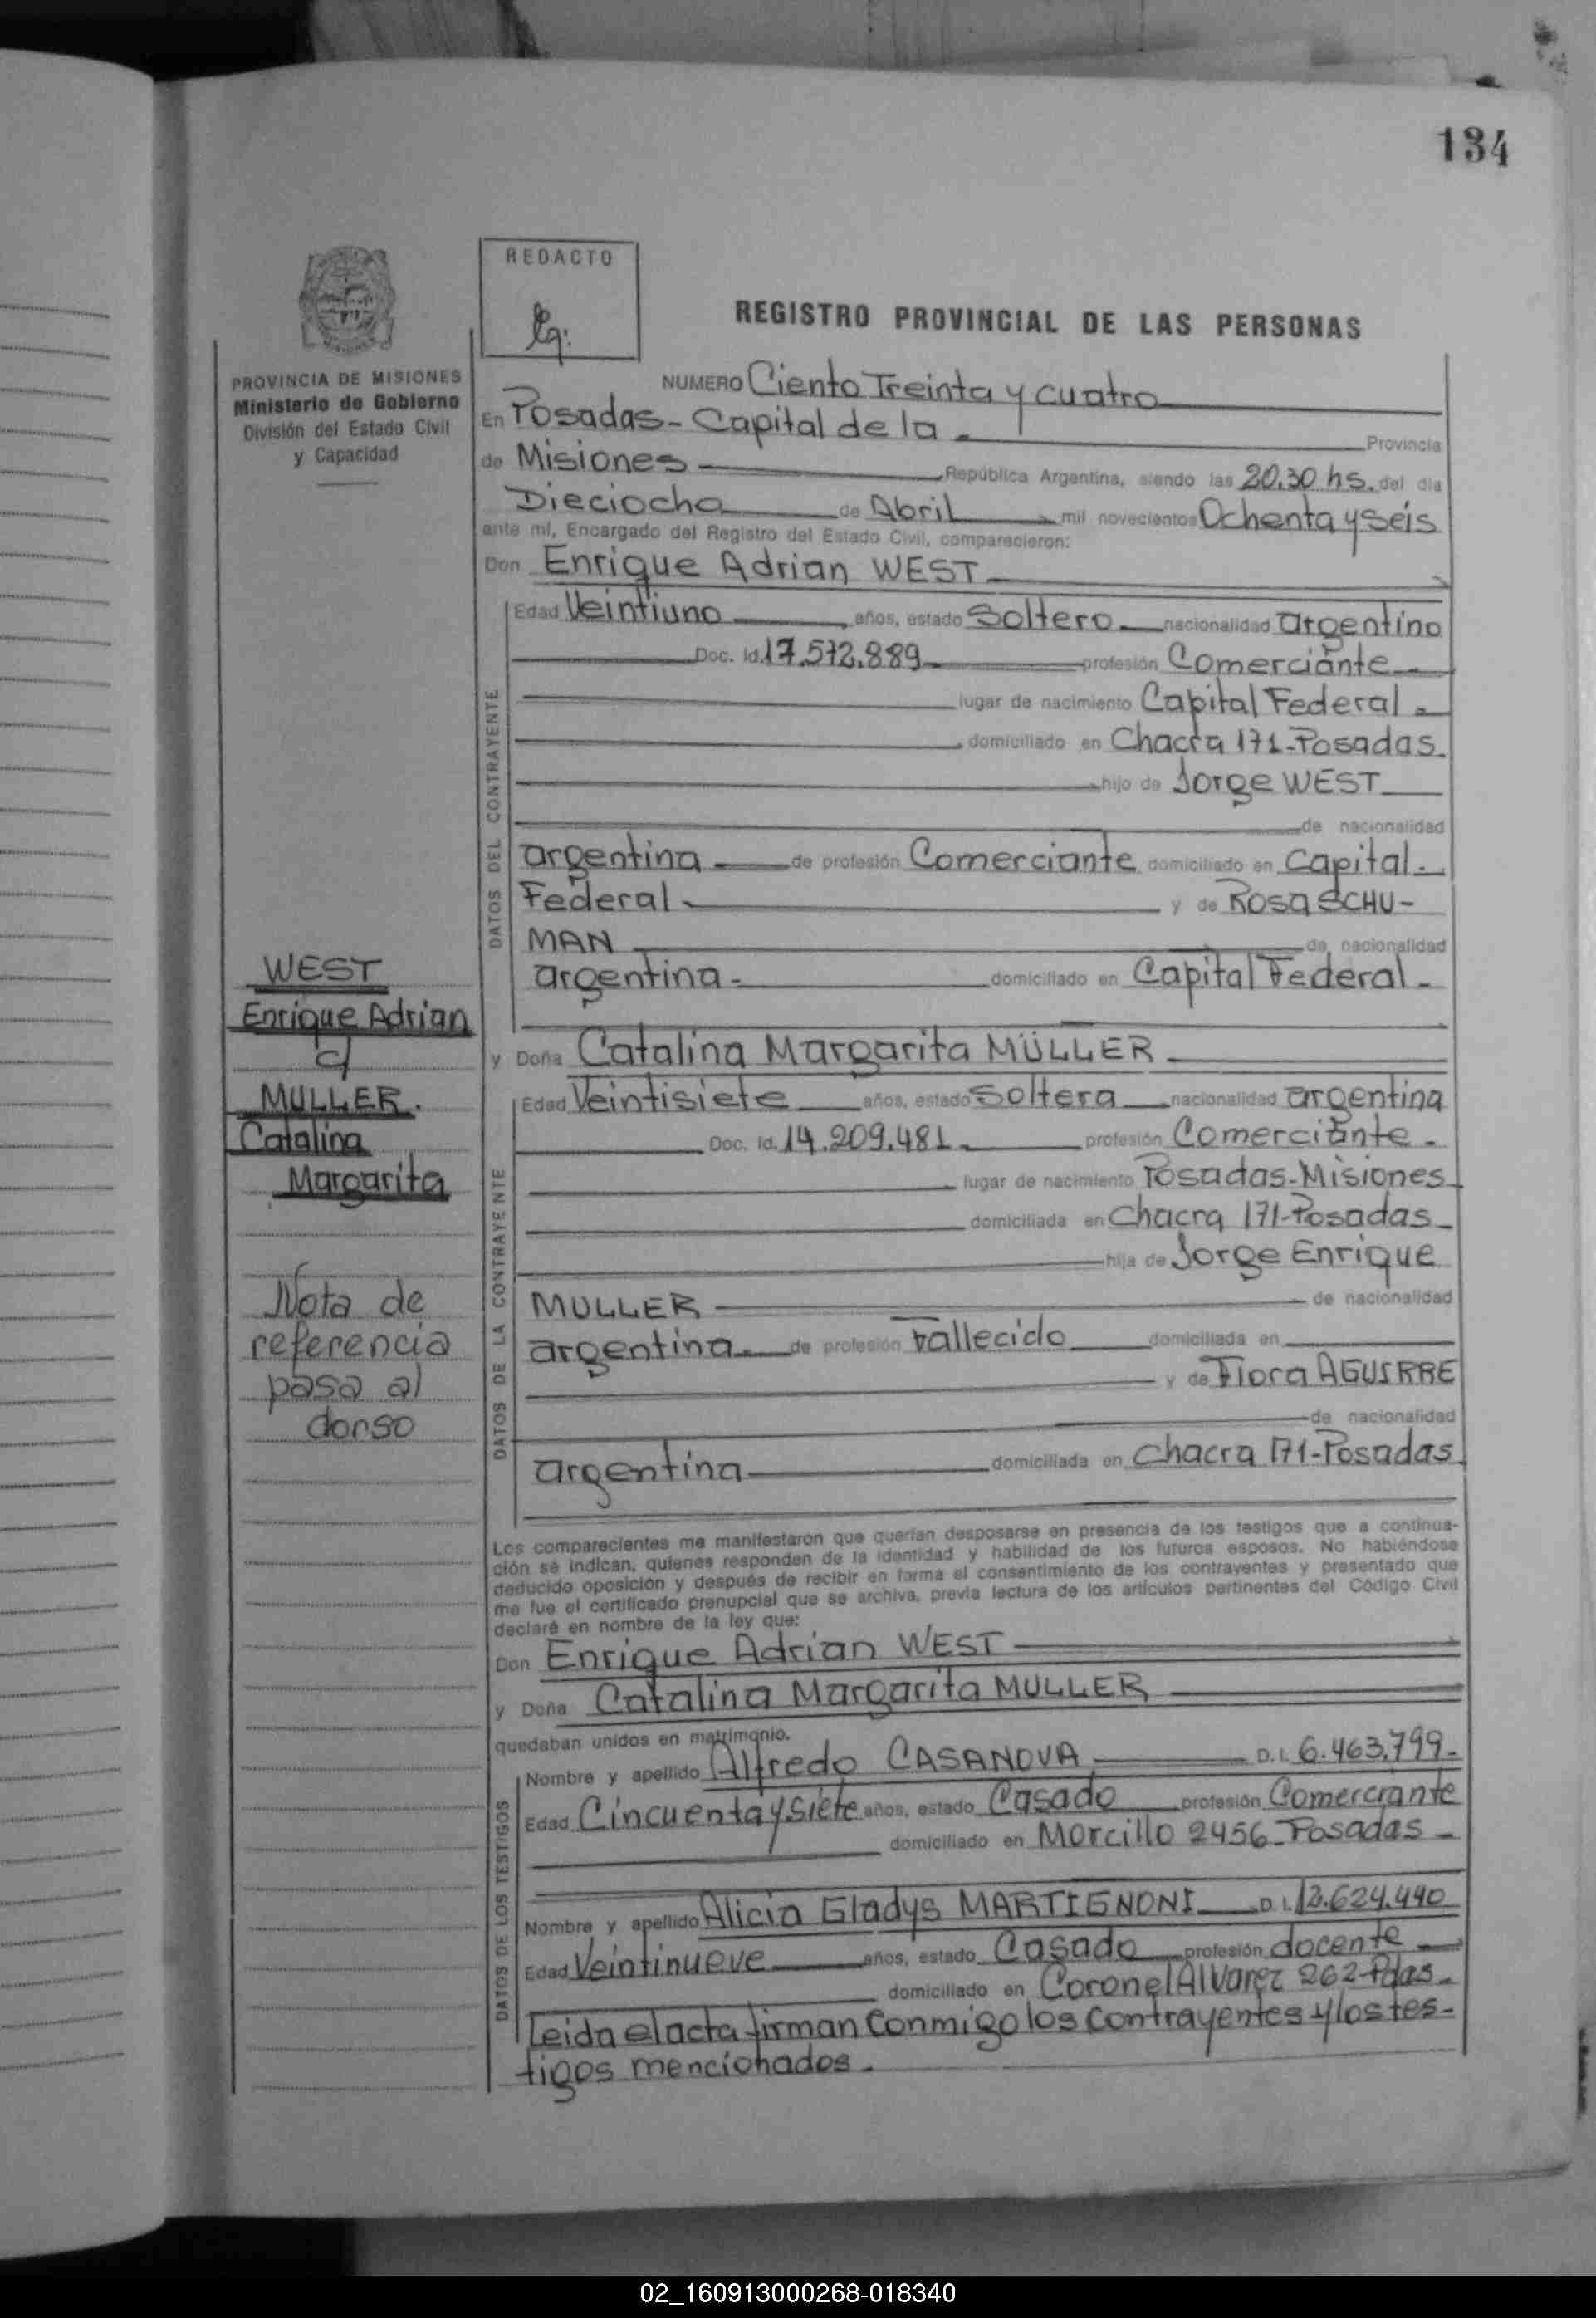 134
REDACTO
REGISTRO PROVINCIAL DE LAS PERSONAS
PROVINCIA DE MISIONES
Ministerio de Gobierno
División del Estado Civil
y Capacidad
NUMERO Ciento Treinta y cuatro
En Posadas - Capital de la - Provincia
de Misiones República Argentina, siendo las 20,30 hs. del día
Dieciocho de Abril mil novecientos Ochenta y seis
ante mí, Encargado del Registro del Estado Civil, comparecieron:
Don Enrique Adrian WEST
DATOS DEL CONTRAYENTE
Edad Veintiuno años, estado Soltero nacionalidad argentino
Doc. Id. 17.572.889 profesión Comerciante
lugar de nacimiento Capital Federal -
domiciliado en Chacra 171-Posadas.
hijo de Jorge WEST
de nacionalidad
argentina de profesión Comerciante domiciliado en Capital.
Federal y de Rosa SCHU-
MAN de nacionalidad
argentina - domiciliado en Capital Federal -
y Doña Catalina Margarita MÜLLER
DATOS DE LA CONTRAYENTE
Edad Veintisiete años, estado Soltera nacionalidad argentina
Doc. Id. 14.209.481 - profesión Comerciante -
lugar de nacimiento Posadas-Misiones
domiciliada en Chacra 171-Posadas -
hija de Jorge Enrique
MULLER de nacionalidad
argentina. de profesión Fallecido domiciliada en
y de Flora AGUIRRE
de nacionalidad
argentina domiciliada en Chacra 171-Posadas
WEST
Enrique Adrian
c/
MULLER.
Catalina
Margarita
Nota de
referencia
pasa al
dorso
Los comparecientes me manifestaron que querían desposarse en presencia de los testigos que a continua-
ción se indican, quienes responden de la identidad y habilidad de los futuros esposos. No habiéndose
deducido oposición y después de recibir en forma el consentimiento de los contrayentes y presentado que
me fue el certificado prenupcial que se archiva, previa lectura de los artículos pertinentes del Código Civil
declaré en nombre de la ley que:
Don Enrique Adrian WEST
y Doña Catalina Margarita MULLER
quedaban unidos en matrimonio.
DATOS DE LOS TESTIGOS
Nombre y apellido Alfredo CASANOVA D. I. 6.463.799-
Edad Cincuenta y siete años, estado Casado profesión Comerciante
domiciliado en Morcillo 2456-Posadas -
Nombre y apellido Alicia Gladys MARTIGNONI D. I. 12.624.440
Edad Veintinueve años, estado Casado profesión docente
domiciliado en Coronel Alvarez 262-Pdas.
Leida el acta firman conmigo los contrayentes y los tes-
tigos mencionados.
02_160913000268-018340